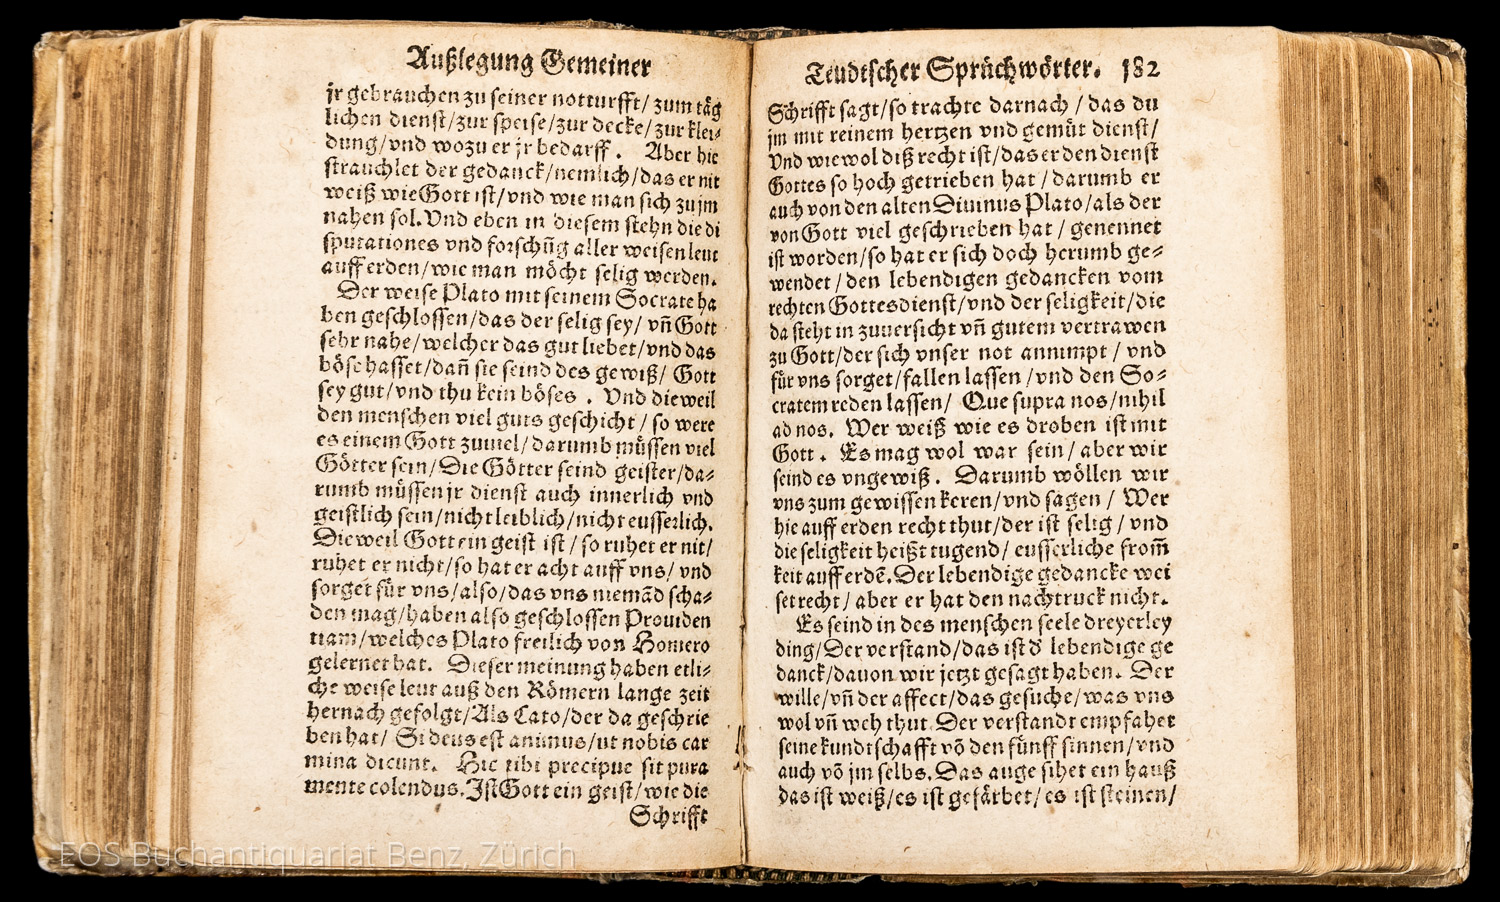 Außlegung Gemeiner
jr gebrauchen zu seiner notturfft/ zum täg
lichen dienst/zur speise/zur decke/zur klei⸗
dung/vnd wozu er jr bedarff. Aber hie
strauchlet der gedanck/nemlich/das er nit
weiß wie Gott ist/vnd wie man sich zu jm
nahen sol. Vnd eben in diesem stehn die di
sputationes vnd forschūg aller weisen leut
auff erden/wie man möcht selig werden.
Der weise Plato mit seinem Socrate ha
ben geschlossen/das der selig sey/ vñ Gott
sehr nahe/welcher das gut liebet/vnd das
böse hasset/dañ sie seind des gewiß/ Gott
sey gut/vnd thu kein böses. Vnd dieweil
den menschen viel guts geschicht/ so were
es einem Gott zuuiel/darumb müssen viel
Götter sein/Die Götter seind geister/da⸗
rumb müssen jr dienst auch innerlich vnd
geistlich sein/nicht leiblich/nicht eusserlich.
Dieweil Gott ein geist ist/ so ruhet er nit/
ruhet er nicht/so hat er acht auff vns/ vnd
sorget für vns/also/das vns niemād scha⸗
den mag/haben also geschlossen Prouiden
tiam/welches Plato freilich von Homero
gelernet hat. Dieser meinung haben etli⸗
che weise leut auß den Römern lange zeit
hernach gefolgt/Als Cato/der da geschrie
ben hat/ Si deus est animus/ut nobis car
mina dicunt. Hic tibi precipue sit pura
mente colendus. Ist Gott ein geist/wie die
Schrifft
Teudtscher Sprüchwörter. 182
Schrifft sagt/so trachte darnach/das du
jm mit reinem hertzen vnd gemüt dienst/
Vnd wiewol diß recht ist/das er den dienst
Gottes so hoch getrieben hat/ darumb er
auch von den alten Diuinus Plato/als der
von Gott viel geschrieben hat/ genennet
ist worden/so hat er sich doch herumb ge⸗
wendet/den lebendigen gedancken vom
rechten Gottesdienst/vnd der seligkeit/die
da steht in zuuersicht vñ gutem vertrawen
zu Gott/der sich vnser not annimpt/ vnd
für vns sorget/fallen lassen/vnd den So⸗
cratem reden lassen/ Que supra nos/nihil
ad nos. Wer weiß wie es droben ist mit
Gott. Es mag wol war sein/aber wir
seind es vngewiß. Darumb wöllen wir
vns zum gewissen keren/vnd sagen/ Wer
hie auff erden recht thut/der ist selig/ vnd
die seligkeit heißt tugend/ eusserliche from̃
keit auff erdē. Der lebendige gedancke wei
set recht/ aber er hat den nachtruck nicht.
Es seind in des menschen seele dreyerley
ding/Der verstand/das ist ď lebendige ge
danck/dauon wir jetzt gesagt haben. Der
wille/vñ der affect/das gesuche/was vns
wol vñ weh thut. Der verstandt empfahet
seine kundtschafft vō den fünff sinnen/vnd
auch vō jm selbs. Das auge sihet ein hauß
das ist weiß/es ist gefärbet/es ist steinen/
EOS Buchantiquariat Benz, Zürich